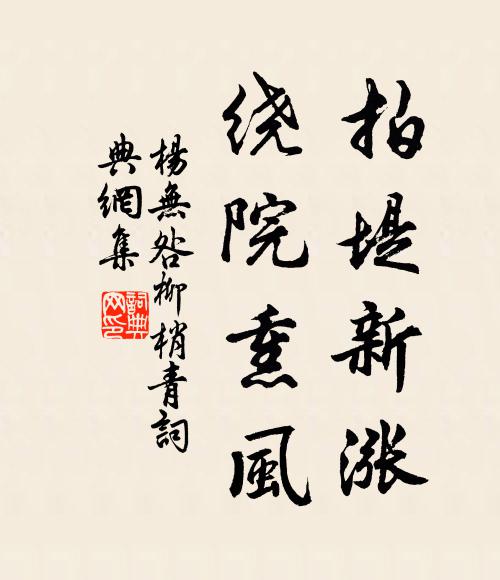 拍堤新涨
绕院熏風
楊無咎柳梢青詞
典網集
詞典
网印